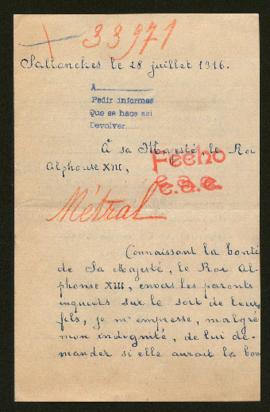 33971
Sallanches le 28 juillet 1916.
A
Pedir informes
Que se hace asi
Devolver
À sa Majesté, le Roi
Alphonse XIII,
Fecho
Métral
Connaissant la bonté
de Sa Majesté, le Roi Al-
phonse XIII, envers les parents
inquiets sur le sort de leurs
fils, je m'empresse, malgré
mon indignité, de lui de-
mander si elle aurait la bon